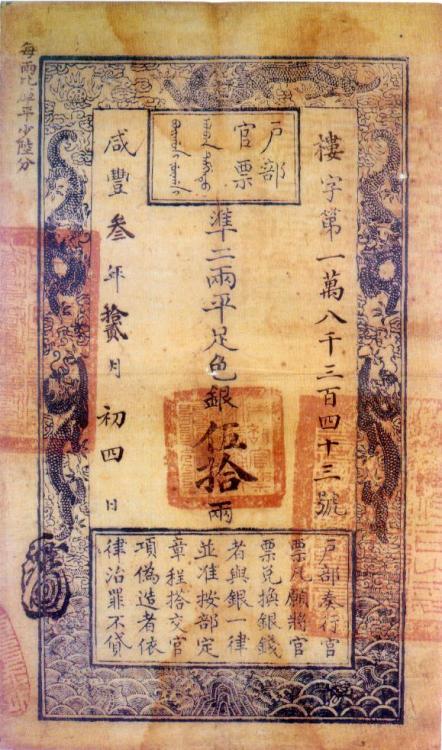 戶部
官票
樓字第一萬八千三百四十三號
準二兩平足色銀伍拾兩
咸豐叁年拾貳月初四日
戶部奏行官
票凡願將官
票兌換銀錢
者與銀一律
並准按部定
章程搭交官
項偽造者依
律治罪不貸
每兩比庫平少陸分